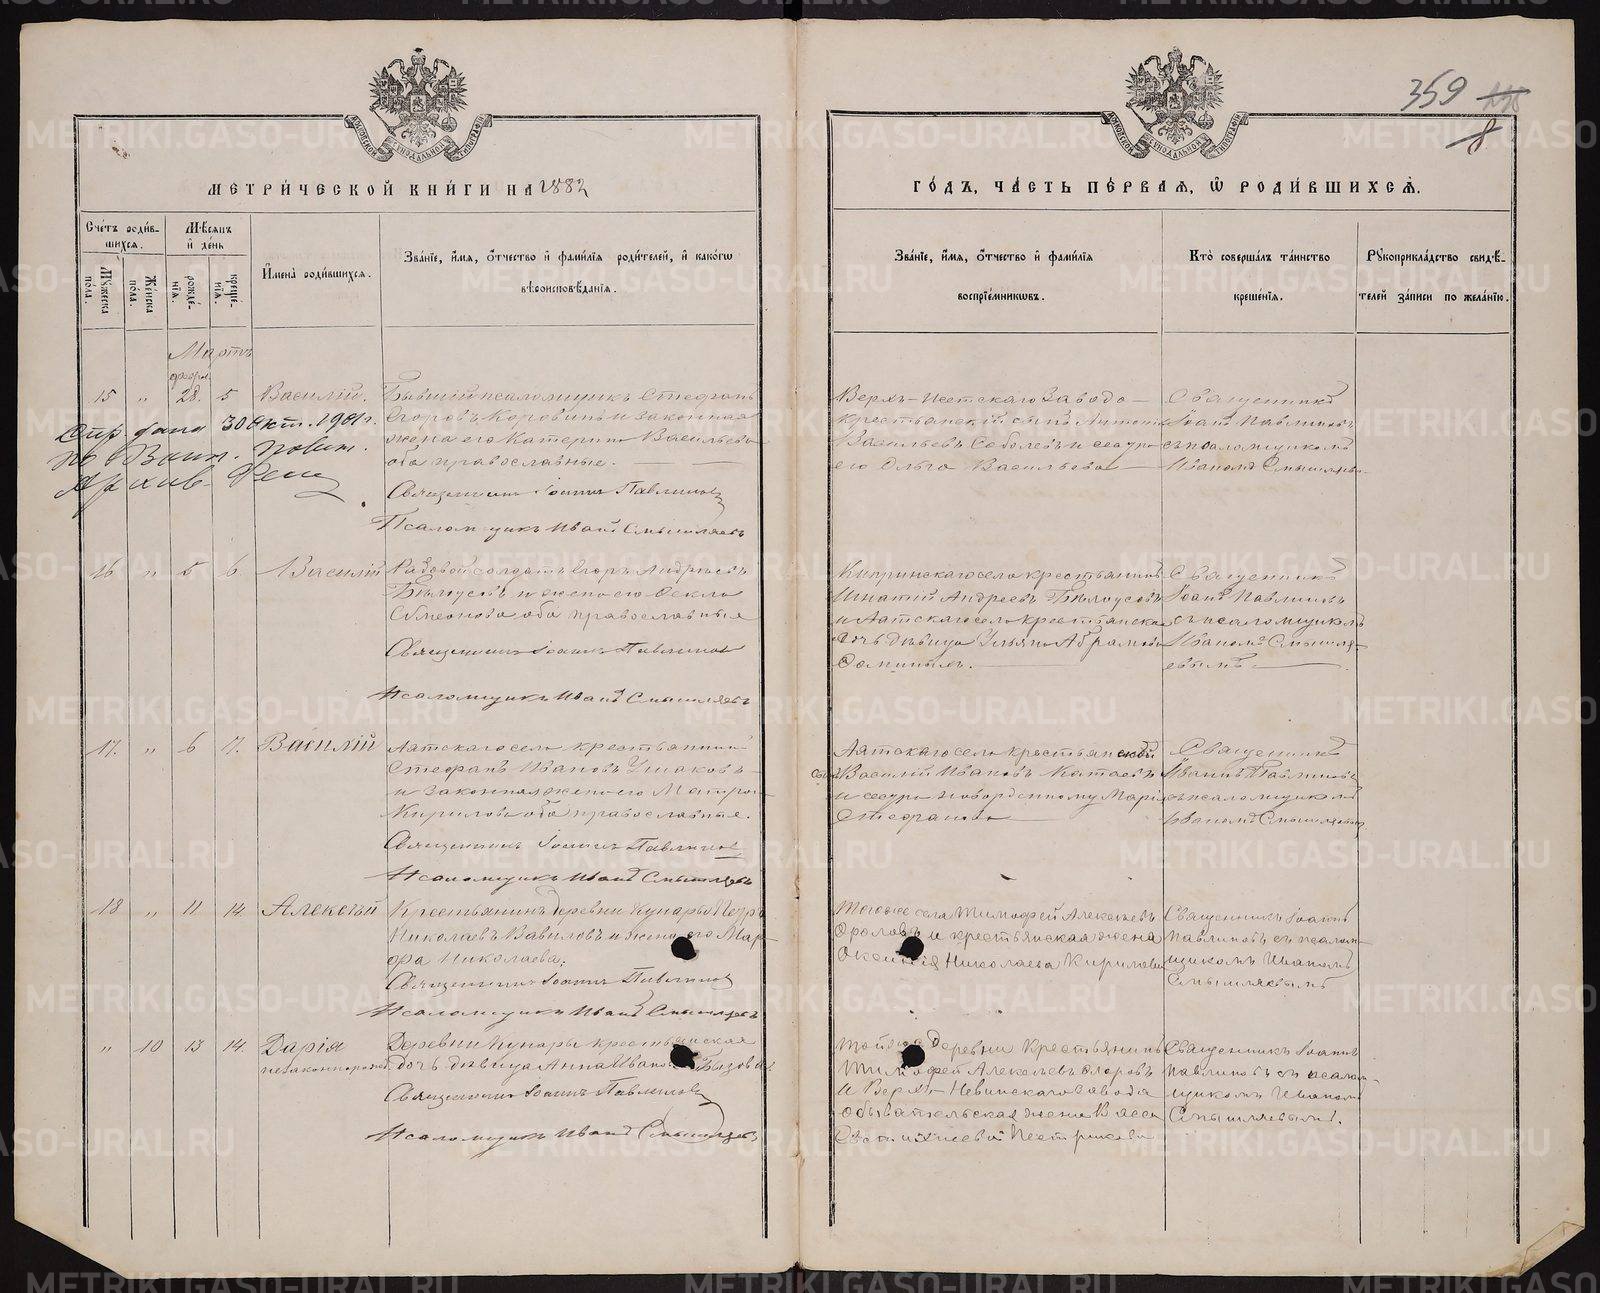 359
8
МЕТРИЧЕСКОЙ КНИГИ НА 1882
ГОДЪ, ЧАСТЬ ПЕРВАЯ, Ѿ РОДИВШИХСЯ.
Счетъ родив-
шихся.
Мужеска
пола.
Женска
пола.
Мѣсяцъ
и день
рожде-
нія.
креще-
нія.
Имена родившихся.
Званіе, имя, отчество и фамилія родителей, и какогѡ
вѣроисповѣданія.
Званіе, имя, отчество и фамилія
воспріемниковъ.
Кто совершалъ таинство
крещенія.
Рукоприкладство свидѣ-
телей записи по желанію.
Мартъ
февр.
15 " 28. 5 Василій.
Бывшій псаломщикъ Стефанъ
Егоровъ Коровинъ и законная
жена его Катерина Васильева
оба православные.
Священникъ Іоаннъ Павлиновъ
Псаломщикъ Иванъ Смышляевъ
Спр дана 30 Окт. 1901 г.
по Воин. повин.
Архив.
Верхъ-Исетскаго завода
крестьянскій сынъ
Васильевъ Соболевъ и сестра
его Ольга Васильева
Священникъ
Іоаннъ Павлиновъ
съ псаломщикомъ
Иваномъ
16 " 5 6 Василій
Рядовой солдатъ Егоръ Андреевъ
Бѣлоусовъ и жена его Фекла
Симеонова оба православные
Священникъ Іоаннъ Павлиновъ
Псаломщикъ Иванъ Смышляевъ
села крестьянинъ
Игнатій Андреевъ Бѣлоусовъ
и Аятскаго села крестьянская
дочь дѣвица Ульяна Абрамова
Священникъ
Іоаннъ Павлиновъ
съ псаломщикомъ
Иваномъ Смышля-
евымъ
17. " 6 7. Василій
Аятскаго села крестьянинъ
Стефанъ Ивановъ Ушаковъ
и законная жена его Матро-
Кирилова оба православные.
Священникъ Іоаннъ Павлиновъ
Псаломщикъ Иванъ Смышляевъ
Аятскаго села крестьянскій
сынъ Василій Ивановъ Катаевъ
и сестра новорожденному Марія
Стефанова
Священникъ
Іоаннъ Павлиновъ
съ псаломщикомъ
Иваномъ Смышляевымъ
18 " 11 14. Алексѣй
Крестьянинъ деревни Кунары Петръ
Николаевъ Вавиловъ и жена его Мар-
фа Николаева;
Священникъ Іоаннъ Павлиновъ
Псаломщикъ Иванъ Смышляевъ
Тогоже села Тимофей Алексѣевъ
и крестьянская жена
Николаева Кирилова
Священникъ Іоаннъ
Павлиновъ съ псалом-
щикомъ Иваномъ
Смышляевымъ
" 10 13 14. Дарія
незаконнорожд.
Деревни Кунары крестьянская
дочь дѣвица Анна Иванова
Священникъ Іоаннъ Павлиновъ
Псаломщикъ Иванъ Смышляевъ
Тойже деревни Крестьянинъ
Тимофей Алексѣевъ
и Верхъ-Невинскаго завода
обывательская жена Васса
Священникъ Іоаннъ
Павлиновъ съ псалом-
щикомъ Иваномъ
Смышляевымъ.
METRIKI.GASO-URAL.RU